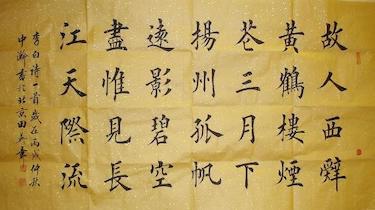 故人西辭
黃鶴樓煙
花三月下
揚州孤帆
遠影碧空
盡惟見長
江天際流
李白詩一首歲在丙戌仲秋
書於北京田英章